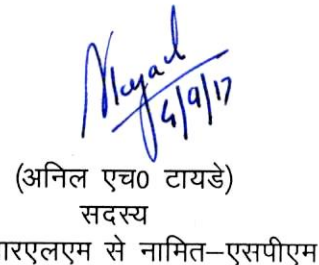 4/9/17
(अनिल एच0 टायडे)
सदस्य
आरएलएम से नामित–एसपीएम